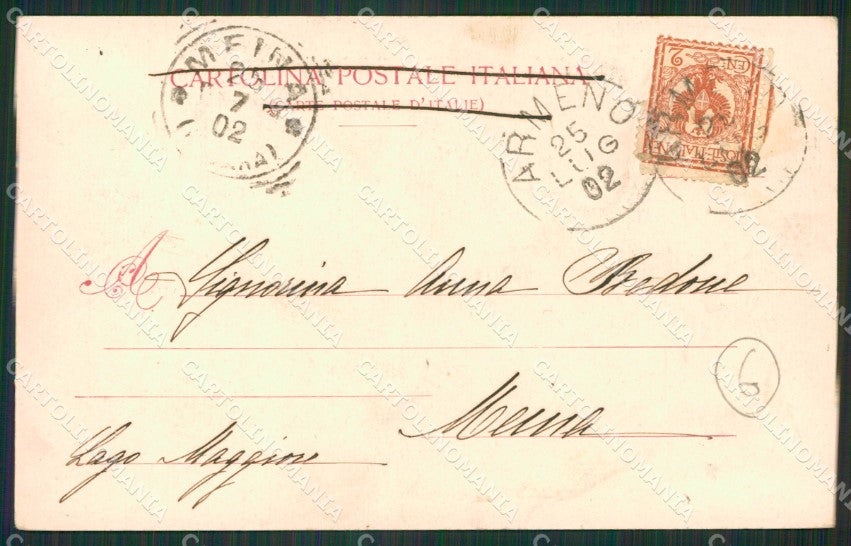 CARTOLINA POSTALE ITALIANA
(CARTE POSTALE D'ITALIE)
MEINA
25
7
02
ARMENO
25
LUG
02
CENT. 2
POSTE ITALIANE
ARM
02
A Signorina Anna Bedone
6
Meina
Lago Maggiore
CARTOLINOMANIA